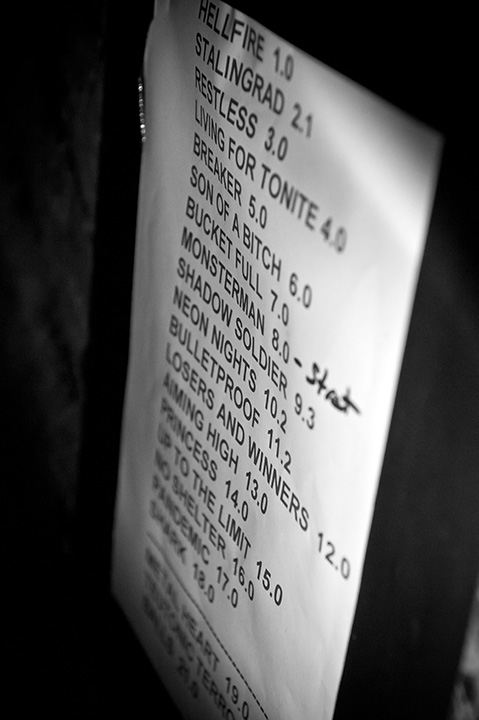 HELLFIRE 1.0
STALINGRAD 2.1
RESTLESS 3.0
LIVING FOR TONITE 4.0
BREAKER 5.0
SON OF A BITCH 6.0
BUCKET FULL 7.0
MONSTERMAN 8.0 - Strat
SHADOW SOLDIER 9.3
NEON NIGHTS 10.2
BULLETPROOF 11.2
LOSERS AND WINNERS 12.0
AIMING HIGH 13.0
PRINCESS 14.0
UP TO THE LIMIT 15.0
NO SHELTER 16.0
PANDEMIC 17.0
SHARK 18.0
METAL HEART 19.0
TEUTONIC TERROR